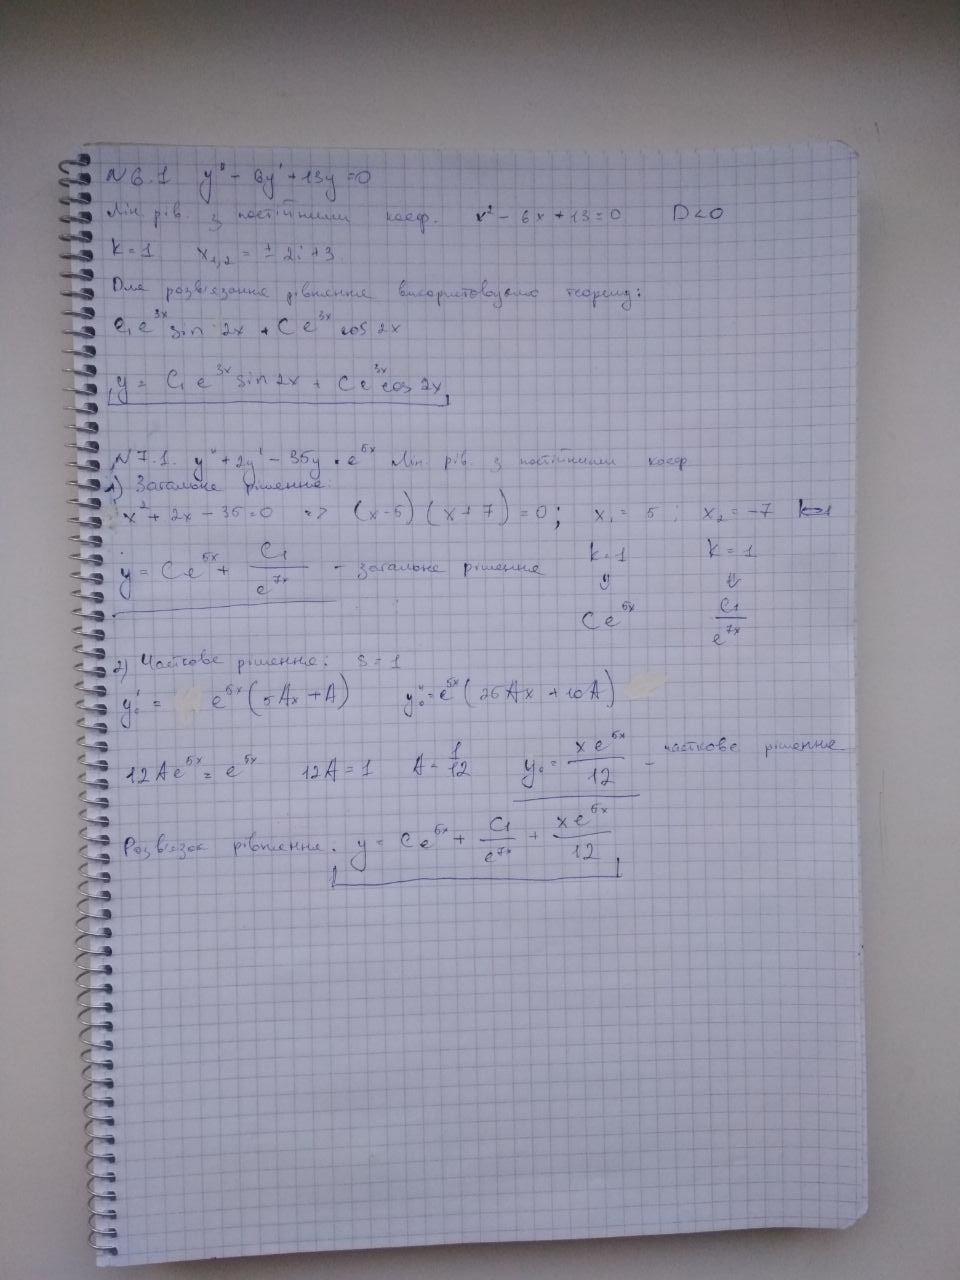 N 6.1 y'' - 6y' + 13y = 0
Лін. рів. з постійними коеф. x² - 6x + 13 = 0 D < 0
k = 1 x₁,₂ = ± 2i + 3
Для розв'язання рівняння використовуємо теорему:
C₁e³ˣ sin 2x + Ce³ˣ cos 2x
y = C₁e³ˣ sin 2x + Ce³ˣ cos 2x
N 7.1. y'' + 2y' - 35y = e⁵ˣ Лін. рів. з постійними коеф
1) Загальне рішення:
x² + 2x - 35 = 0 => (x - 5)(x + 7) = 0; x₁ = 5; x₂ = -7
k = 1 k = 1
y = Ce⁵ˣ + C₁/e⁷ˣ - загальне рішення
Ce⁵ˣ C₁/e⁷ˣ
2) Часткове рішення: S = 1
y₀' = e⁵ˣ(5Ax + A) y₀'' = e⁵ˣ(25Ax + 10A)
12Ae⁵ˣ = e⁵ˣ 12A = 1 A = 1/12 y₀ = xe⁵ˣ/12 - часткове рішення
Розв'язок рівняння. y = Ce⁵ˣ + C₁/e⁷ˣ + xe⁵ˣ/12